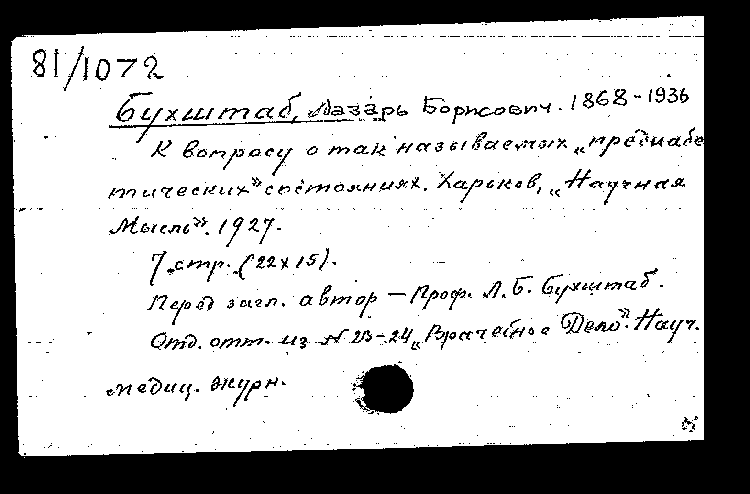 81/1072
Бухштаб, Лазарь Борисович. 1868-1936
К вопросу о так называемых „предиабе
тических" состояниях. Харьков, „Научная
Мысль". 1927.
7 стр. (22х15).
Перед загл. автор — Проф. Л. Б. Бухштаб.
Отд. отт. из № 23-24 „Врачебное Дело". Науч.
медиц. журн.